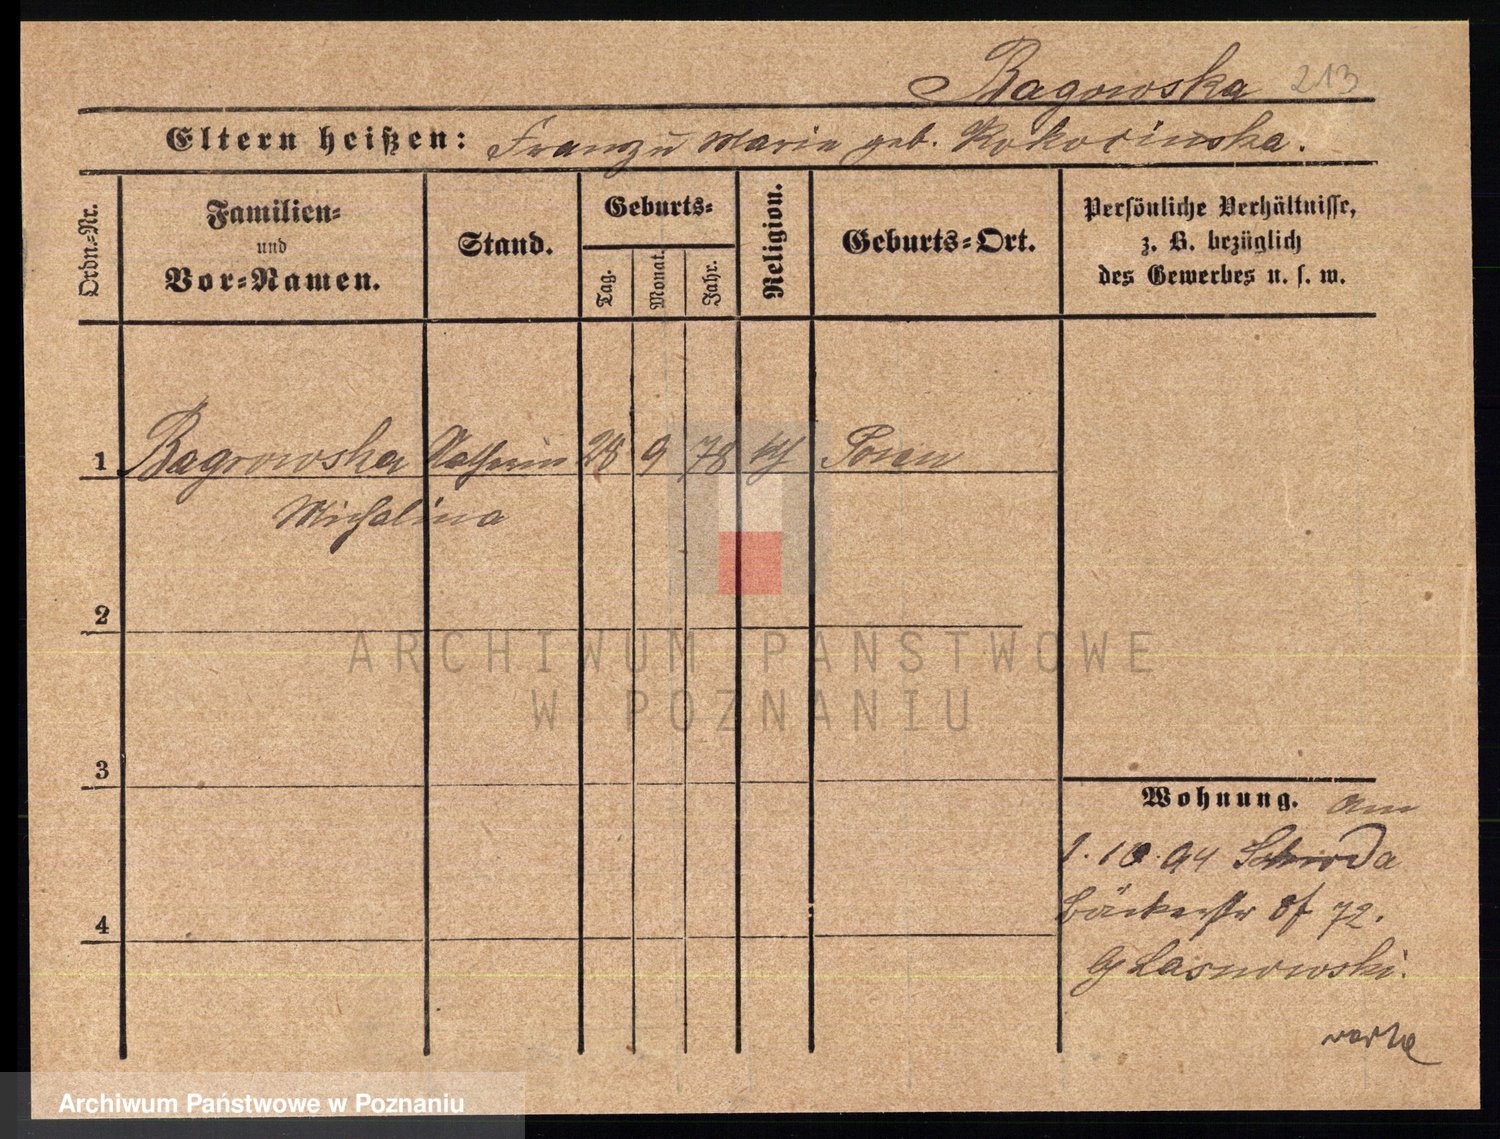 Bagrowska 213
Eltern heißen: Franz u Marie geb. Kokocinska.
Ordn.=Nr.
Familien=
und
Vor=Namen.
Stand.
Geburts=
Tag. Monat. Jahr.
Religion.
Geburts=Ort.
Persönliche Verhältnisse,
z. B. bezüglich
des Gewerbes u. s. w.
1 Bagrowska 28 9 78 kth Posen
Michalina
2
ARCHIWUM PAŃSTWOWE
W POZNANIU
3
Wohnung. am
1. 10. 94 Schroda
Bäckerstr 72.
Lasnowski.
4
Archiwum Państwowe w Poznaniu